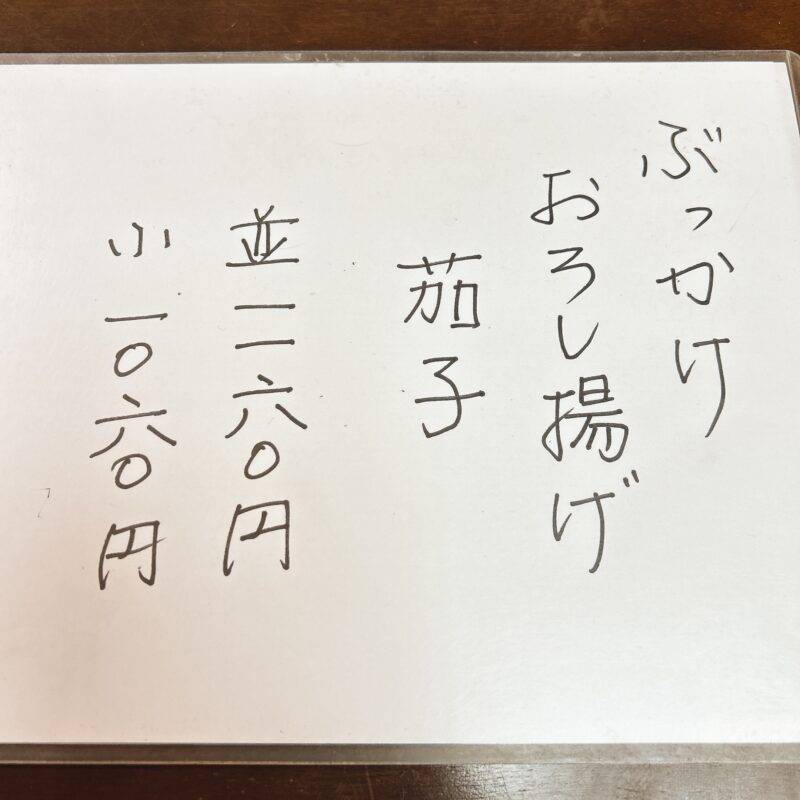 ぶっかけ
おろし揚げ
茄子
並一一六〇円
小一〇六〇円